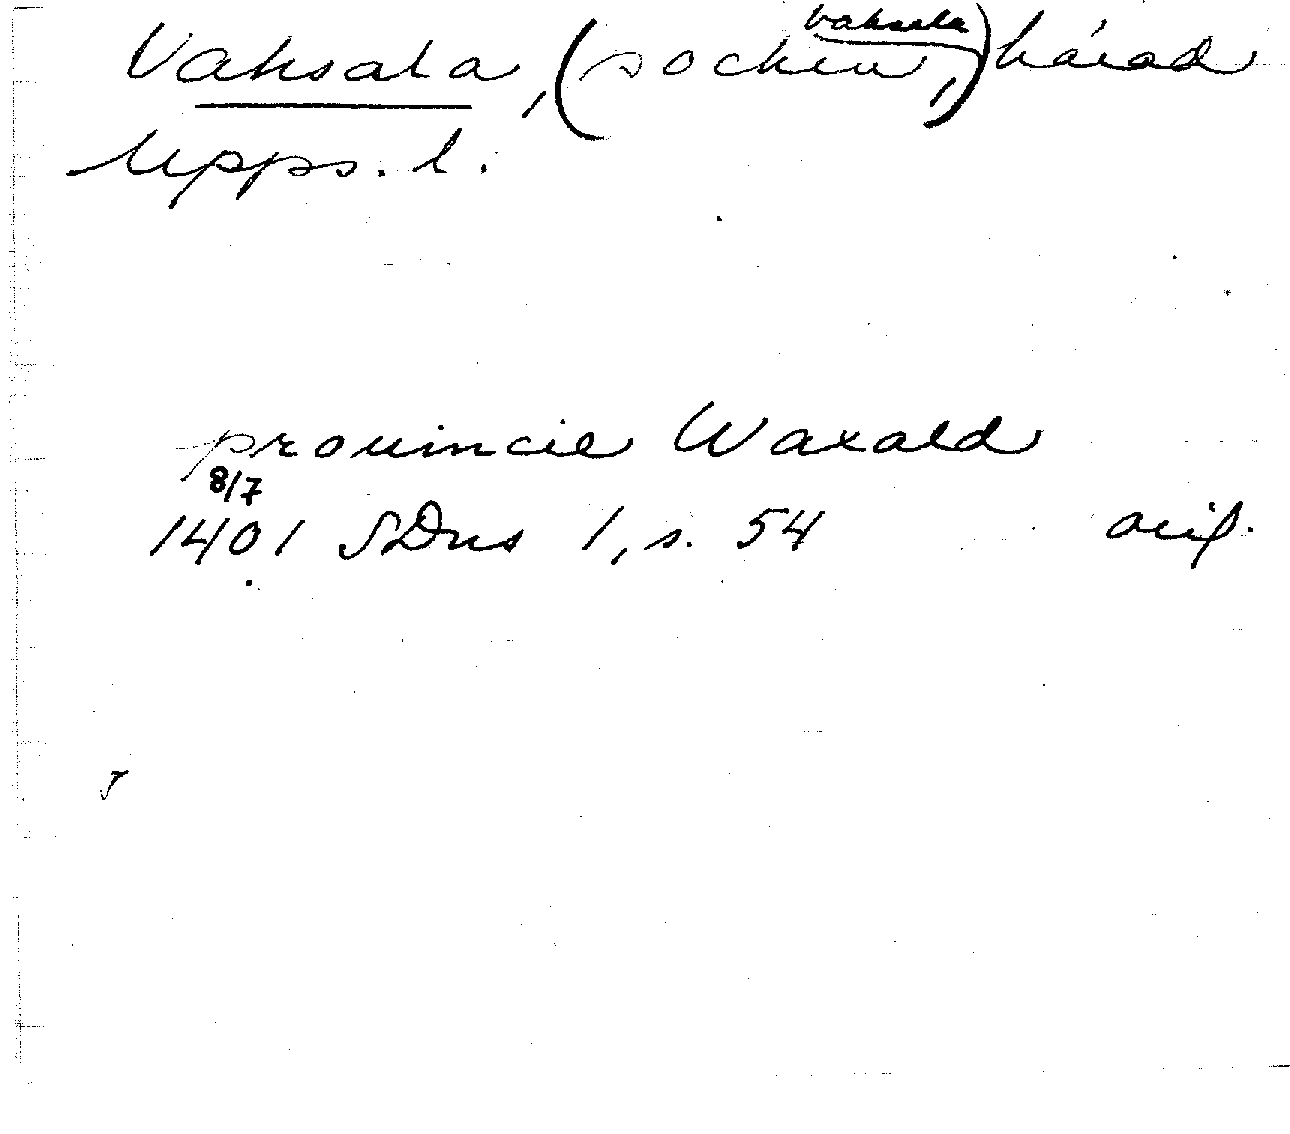 Vaksala, (socken, Vaksala) härad
Upps. l.
prouincie Waxald
8/7
1401 SDns 1, s. 54 orig.